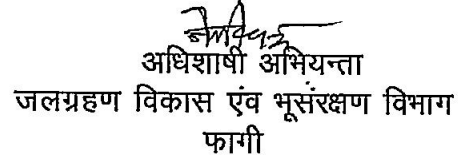 अधिशाषी अभियन्ता
जलग्रहण विकास एंव भूसंरक्षण विभाग
फागी